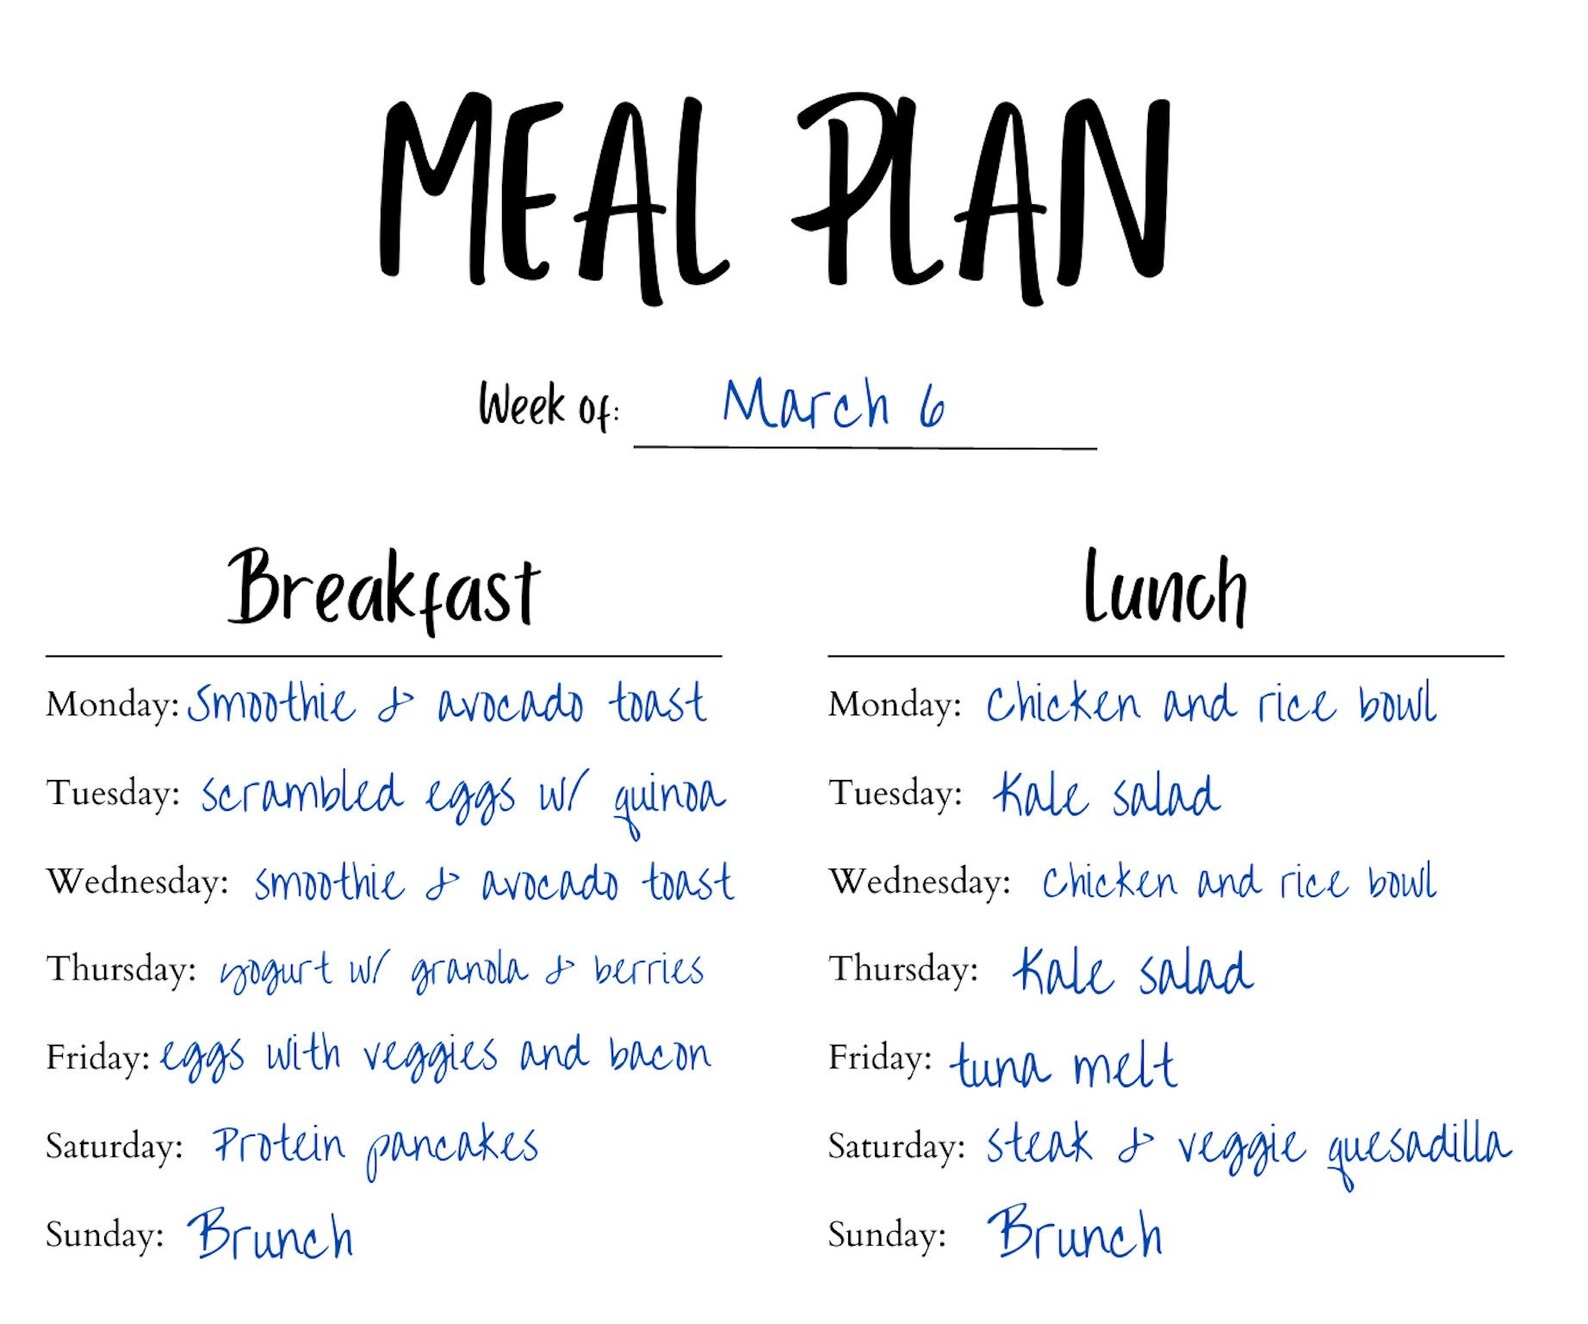 MEAL PLAN
Week of: March 6
Breakfast
Monday: Smoothie & avocado toast
Tuesday: scrambled eggs w/ quinoa
Wednesday: smoothie & avocado toast
Thursday: yogurt w/ granola & berries
Friday: eggs with veggies and bacon
Saturday: Protein pancakes
Sunday: Brunch
Lunch
Monday: Chicken and rice bowl
Tuesday: Kale salad
Wednesday: Chicken and rice bowl
Thursday: Kale salad
Friday: tuna melt
Saturday: steak & veggie quesadilla
Sunday: Brunch